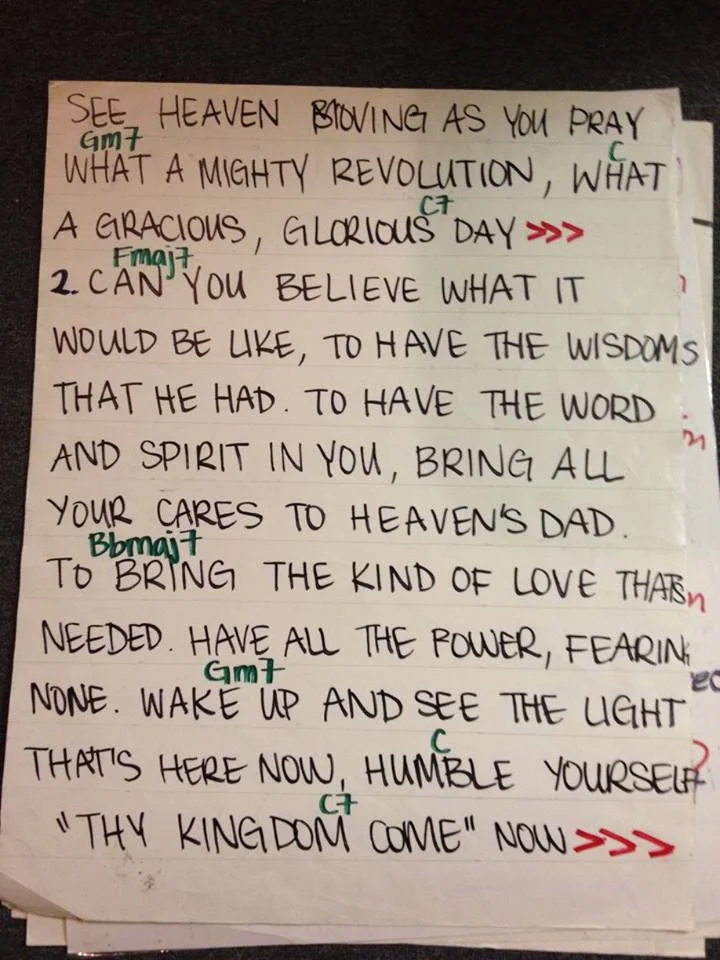 SEE HEAVEN MOVING AS YOU PRAY
Gm7
WHAT A MIGHTY REVOLUTION, WHAT
C
A GRACIOUS, GLORIOUS DAY >>>
C7
Fmaj7
2. CAN YOU BELIEVE WHAT IT
WOULD BE LIKE, TO HAVE THE WISDOMS
THAT HE HAD. TO HAVE THE WORD
AND SPIRIT IN YOU, BRING ALL
YOUR CARES TO HEAVEN'S DAD.
Bbmaj7
TO BRING THE KIND OF LOVE THATS
NEEDED. HAVE ALL THE POWER, FEARING
Gm7
NONE. WAKE UP AND SEE THE LIGHT
C
THAT'S HERE NOW, HUMBLE YOURSELF
C7
"THY KINGDOM COME" NOW >>>